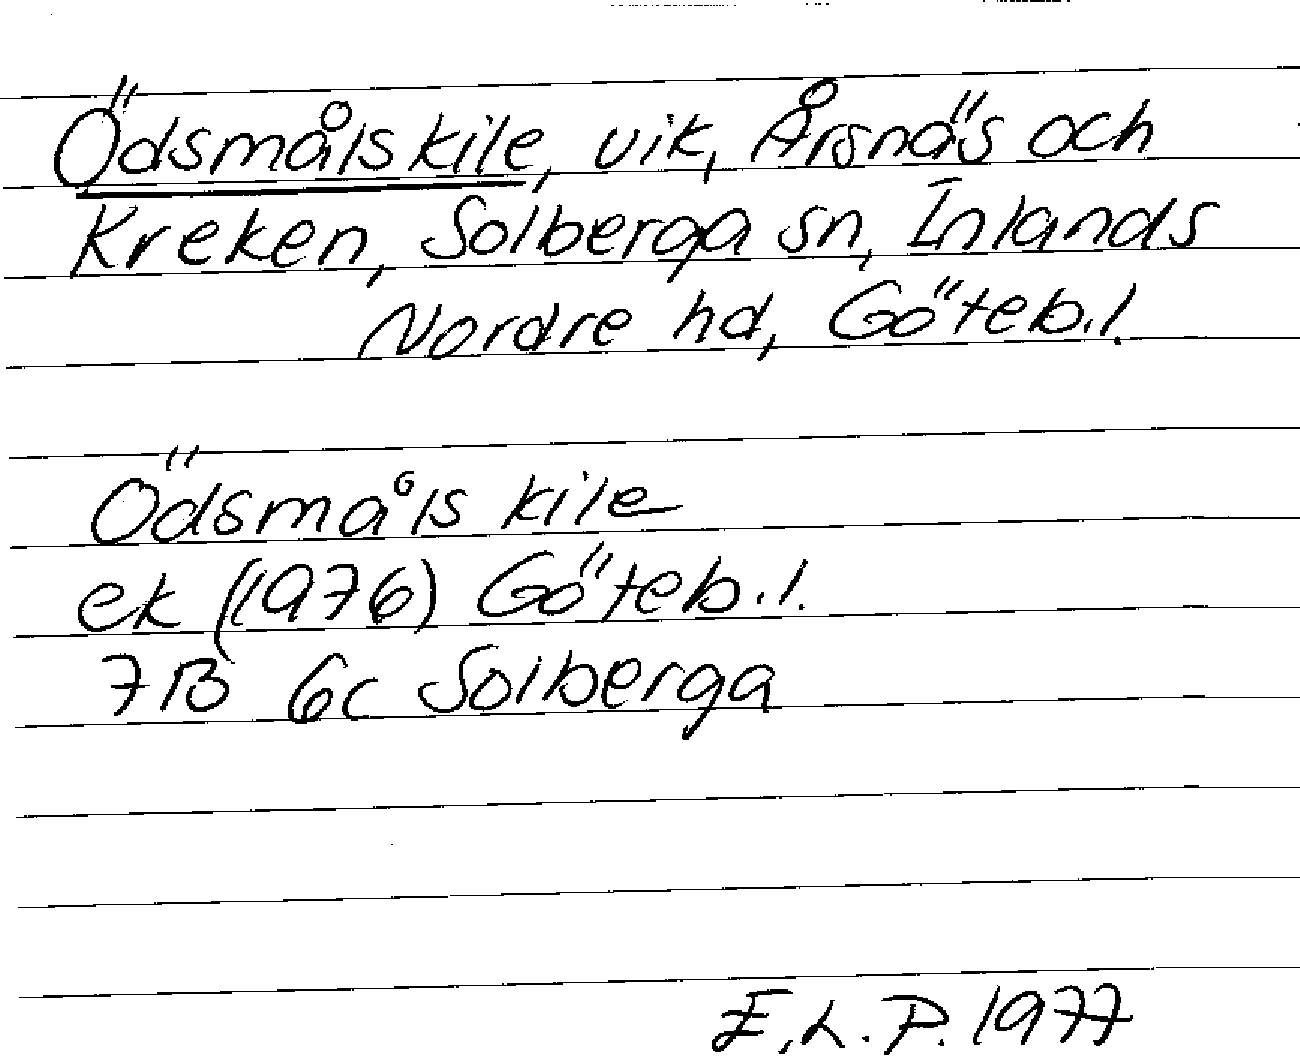 Ödsmålskile, vik, Årsnäs och
Kreken, Solberga sn, Inlands
Nordre hd, Göteb.l.
Ödsmåls kile
ek (1976) Göteb.l.
7B 6c Solberga
E.L.P. 1977